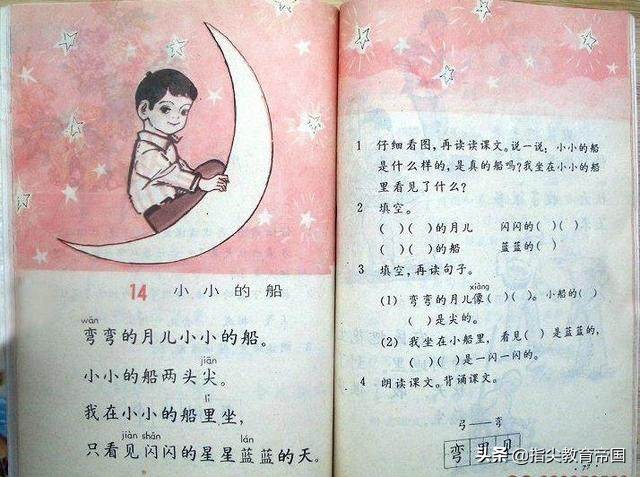 14 小小的船
wān
弯弯的月儿小小的船。
jiān
小小的船两头尖。
lǐ
我在小小的船里坐，
jiàn shǎn lán
只看见闪闪的星星蓝蓝的天。
1 仔细看图，再读读课文。说一说：小小的船
是什么样的，是真的船吗？我坐在小小的船
里看见了什么？
2 填空。
( )( )的月儿 闪闪的( )( )
( )( )的船 蓝蓝的( )
3 填空，再读句子。
xiàng
(1) 弯弯的月儿像( )( )。小船的( )
( )是尖的。
(2) 我坐在小船里，看见( )是蓝蓝的，
( )( )是一闪一闪的。
4 朗读课文。背诵课文。
弓——弯
弯里见
头条 @指尖教育帝国